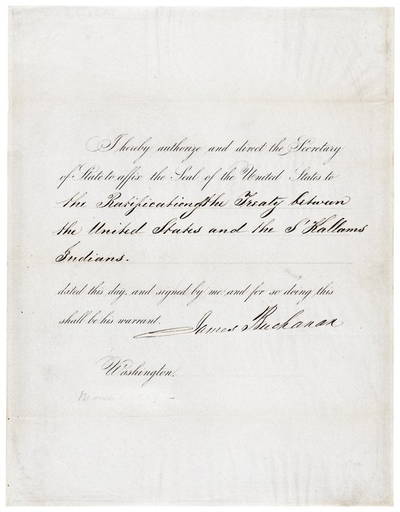 I hereby authorize and direct the Secretary
of State to affix the Seal of the United States to
the Ratification of the Treaty between
the United States and the S'Kallams
Indians.
dated this day, and signed by me: and for so doing this
shall be his warrant.
James Buchanan
Washington,